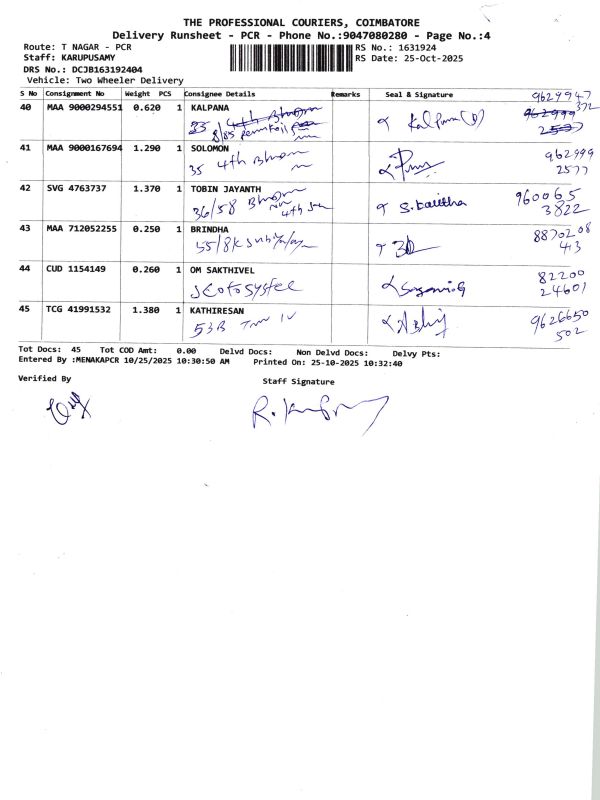 THE PROFESSIONAL COURIERS, COIMBATORE
Delivery Runsheet - PCR - Phone No.:9047080280 - Page No.:4
Route: T NAGAR - PCR
RS No.: 1631924
Staff: KARUPUSAMY
RS Date: 25-Oct-2025
DRS No.: DCJB163192404
Vehicle: Two Wheeler Delivery
S No Consignment No Weight PCS Consignee Details Remarks Seal & Signature
40 MAA 9000294551 0.620 1 KALPANA
9629947
372
4th
Kalpana
41 MAA 9000167694 1.290 1 SOLOMON
35 4th
962999
2577
42 SVG 4763737 1.370 1 TOBIN JAYANTH
36/58
4th
960065
3822
43 MAA 712052255 0.250 1 BRINDHA
55/8K
8870208
413
44 CUD 1154149 0.260 1 OM SAKTHIVEL
82200
24601
45 TCG 41991532 1.380 1 KATHIRESAN
53B
9626650
502
Tot Docs: 45 Tot COD Amt: 0.00 Delvd Docs: Non Delvd Docs: Delvy Pts:
Entered By :MENAKAPCR 10/25/2025 10:30:50 AM Printed On: 25-10-2025 10:32:40
Verified By
Staff Signature